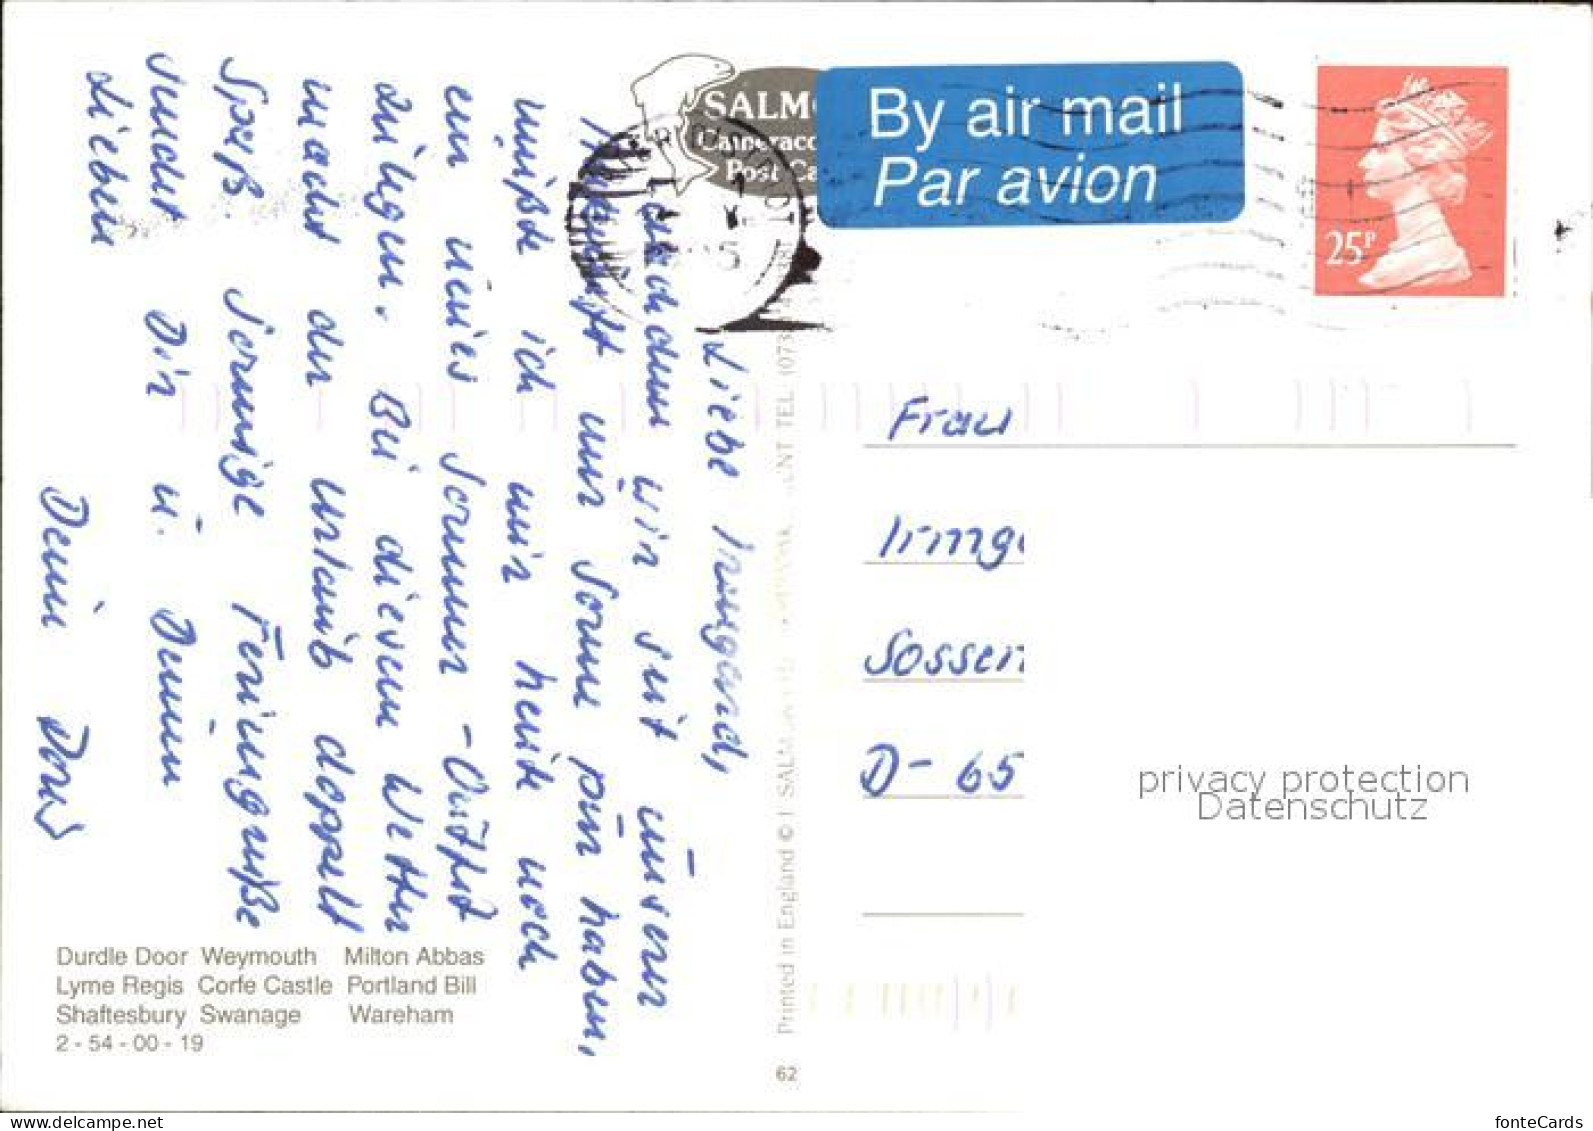 SALMO
Cameracol
Post Ca
By air mail
Par avion
25P
Liebe Irmgard,
nachdem wir seit unserer
Ankunft nur Sonne pur haben,
mußte ich mir heute noch
ein neues Sommer-Outfit
zulegen. Bei diesem Wetter
macht der Urlaub doppelt
Spaß. Sonnige Feriengrüße
sendet Dir u. Deinen
Lieben
Deine
Frau
Irmg
Sossen
D-65
privacy protection
Datenschutz
Durdle Door Weymouth Milton Abbas
Lyme Regis Corfe Castle Portland Bill
Shaftesbury Swanage Wareham
2 - 54 - 00 - 19
Printed in England © J SALM
ENT TEL: 073
62
fonteCards